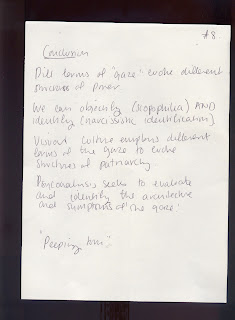 #8
Conclusion
Diff terms of 'gaze' evoke different
structures of power
We can objectify (scopophilia) AND
identify (narcissistic identification)
Visual Culture employs different
terms of the gaze to evoke
structures of patriarchy
Psychoanalysis seeks to evaluate
and identify the architecture
and symptoms of 'the gaze'
"Peeping Tom"